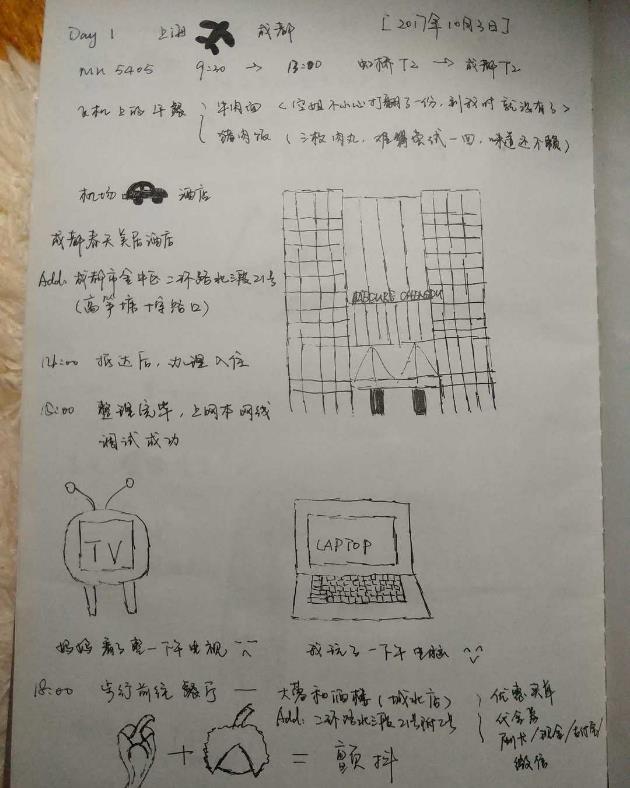 Day 1 上海 成都 [2017年10月3日]
MU 5405 9:20 → 13:00 虹桥T2 → 成都T2
飞机上的午餐 牛肉面 <空姐不小心打翻了一份,到我时就没有了>
猪肉饭 (三枚肉丸,难得尝试一回,味道还不赖)
机场 酒店
成都春天美居酒店
Add: 成都市金牛区二环路北三段21号
(高笋塘十字路口)
MERCURE CHENGDU
14:00 抵达后,办理入住
15:00 整理完毕,上网本网线
调试成功
TV
LAPTOP
妈妈看了整一下午电视
我玩了一下午电脑
18:00 步行前往餐厅 — 大蓉和酒楼(城北店)
Add: 二环路北三段21号附2号
优惠买单
代金券
刷卡/现金/支付宝/
微信
+ = 颤抖